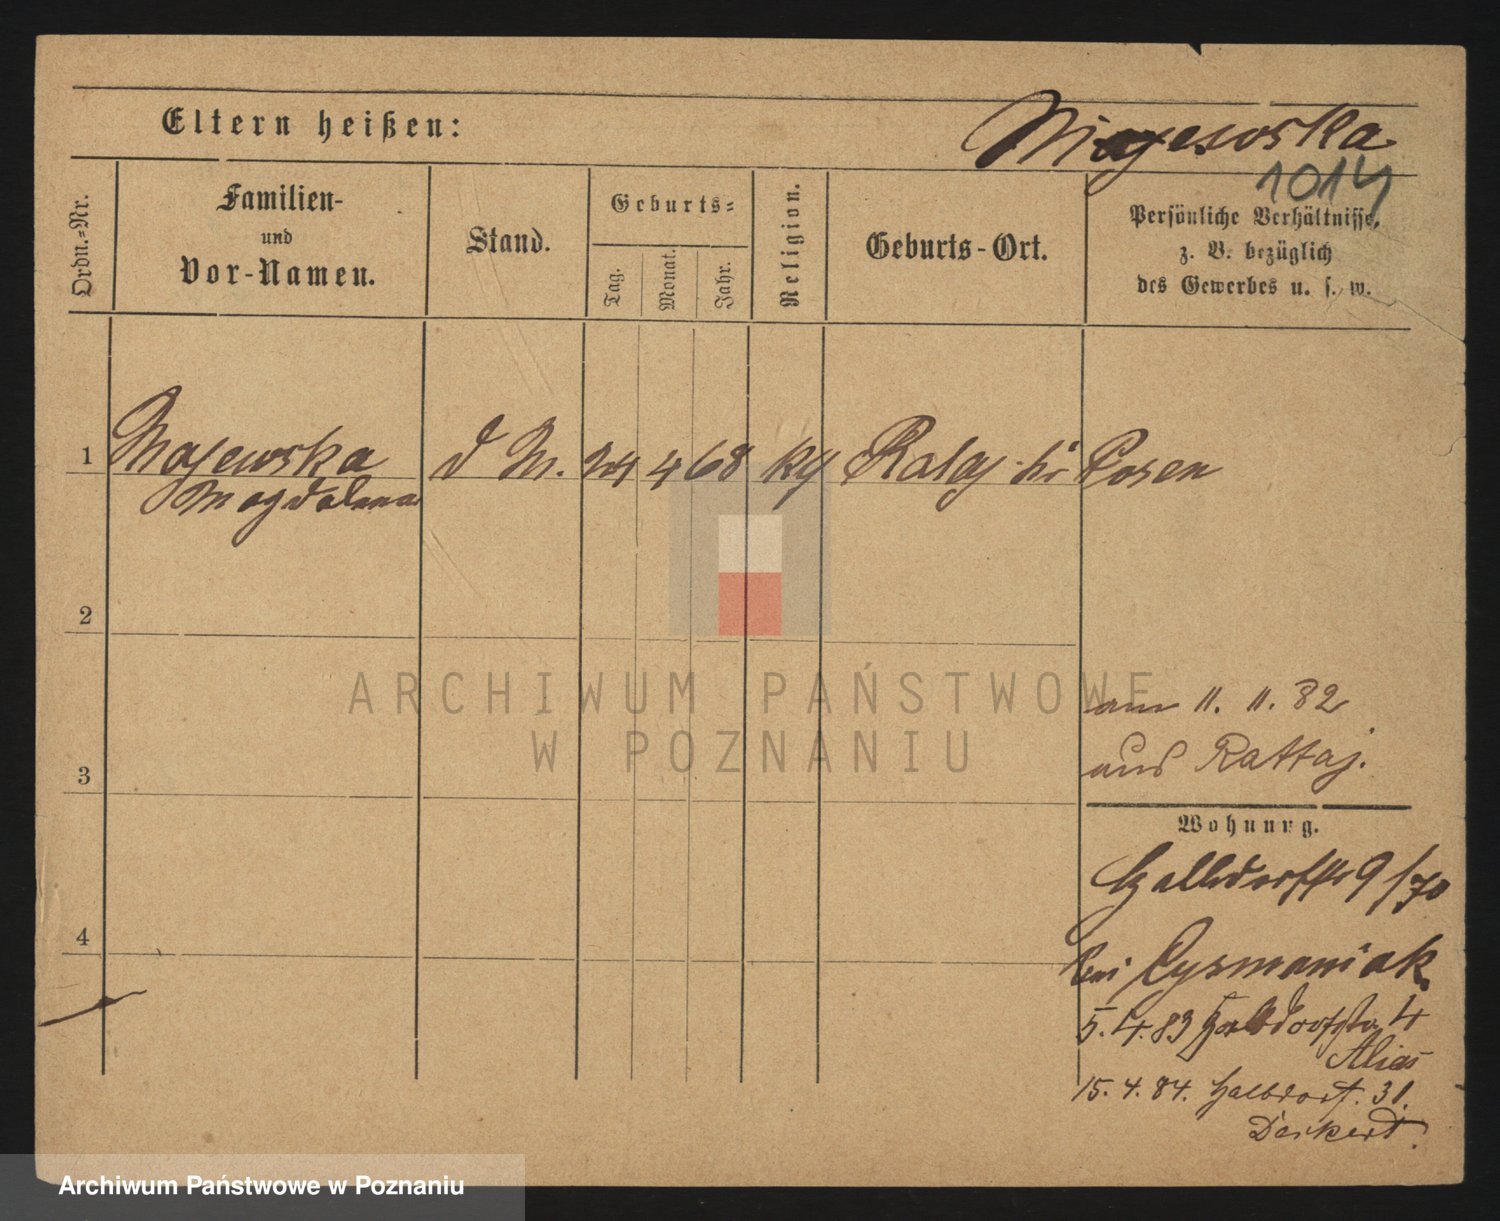 Eltern heißen:
Majewska
1014
Ordn.=Nr.
Familien-
und
Vor-Namen.
Stand.
Geburts=
Tag.
Monat.
Jahr.
Religion.
Geburts-Ort.
Persönliche Verhältnisse,
z. B. bezüglich
des Gewerbes u. s. w.
1 Majewska d M. 24 4 68 Rataj Posen
Magdalena
2
ARCHIWUM PAŃSTWOWE
W POZNANIU
am 11. 11. 82
aus Rattaj.
3
Wohnung.
Halbdorfstr 9/70
4
bei Cysmaniak.
5.4.83 Halbdorfstr 4
Alias
15.4.84. Halbdorf. 31.
Deikert.
Archiwum Państwowe w Poznaniu